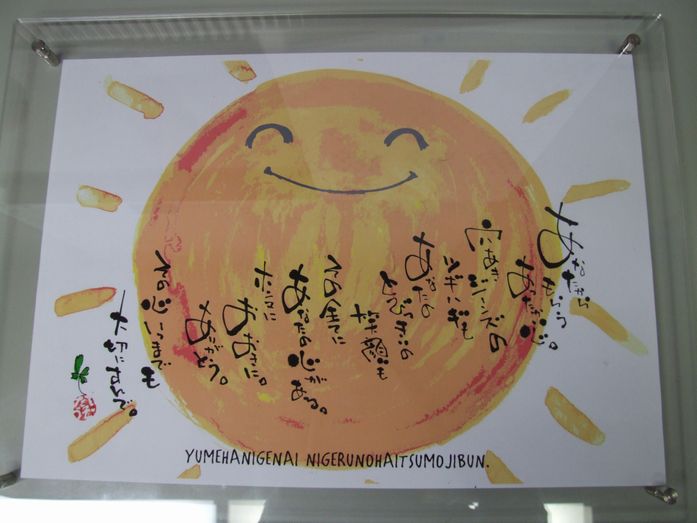 あなたから
もらう
あたたか心。
穴あきジーンズの
ツギハギも
あなたの
とびっきりの
笑顔も
その全てに
あなたの心がある。
ホントに
おおきに。
ありがとう。
その心いつまでも
大切になんで。
YUMEHANIGENAI NIGERUNOHAITSUMOJIBUN.